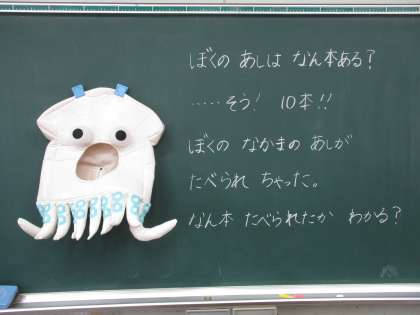 ぼくの あしは なん本ある?
……そう! 10本!!
ぼくの なかまの あしが
たべられ ちゃった。
なん本 たべられたか わかる?